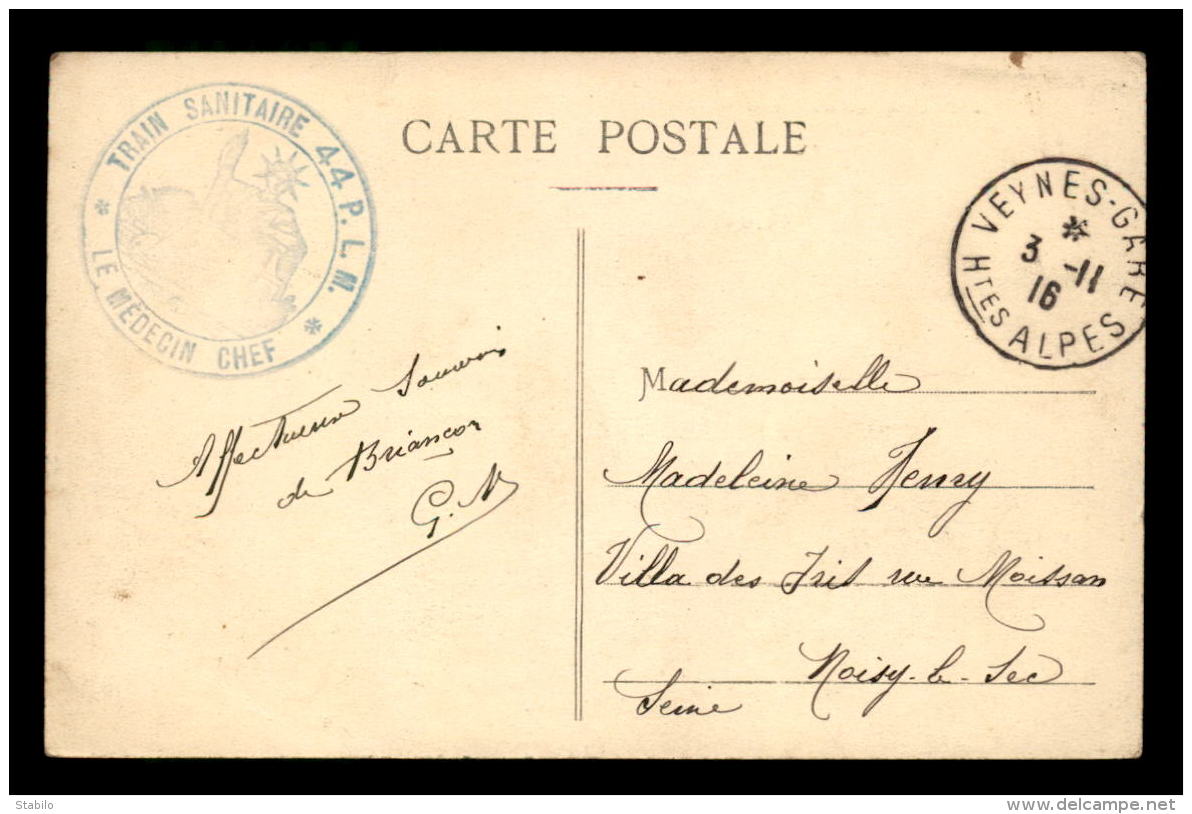 TRAIN SANITAIRE 44 P.L.M.
LE MÉDECIN CHEF
CARTE POSTALE
VEYNES-GARE
3 -11
16
Htes ALPES
Affectueux Souvenir
de Briançon
G. N
Mademoiselle
Madeleine Henry
Villa des Iris rue Moissan
Noisy-le-Sec
Seine
Stabilo
www.delcampe.net